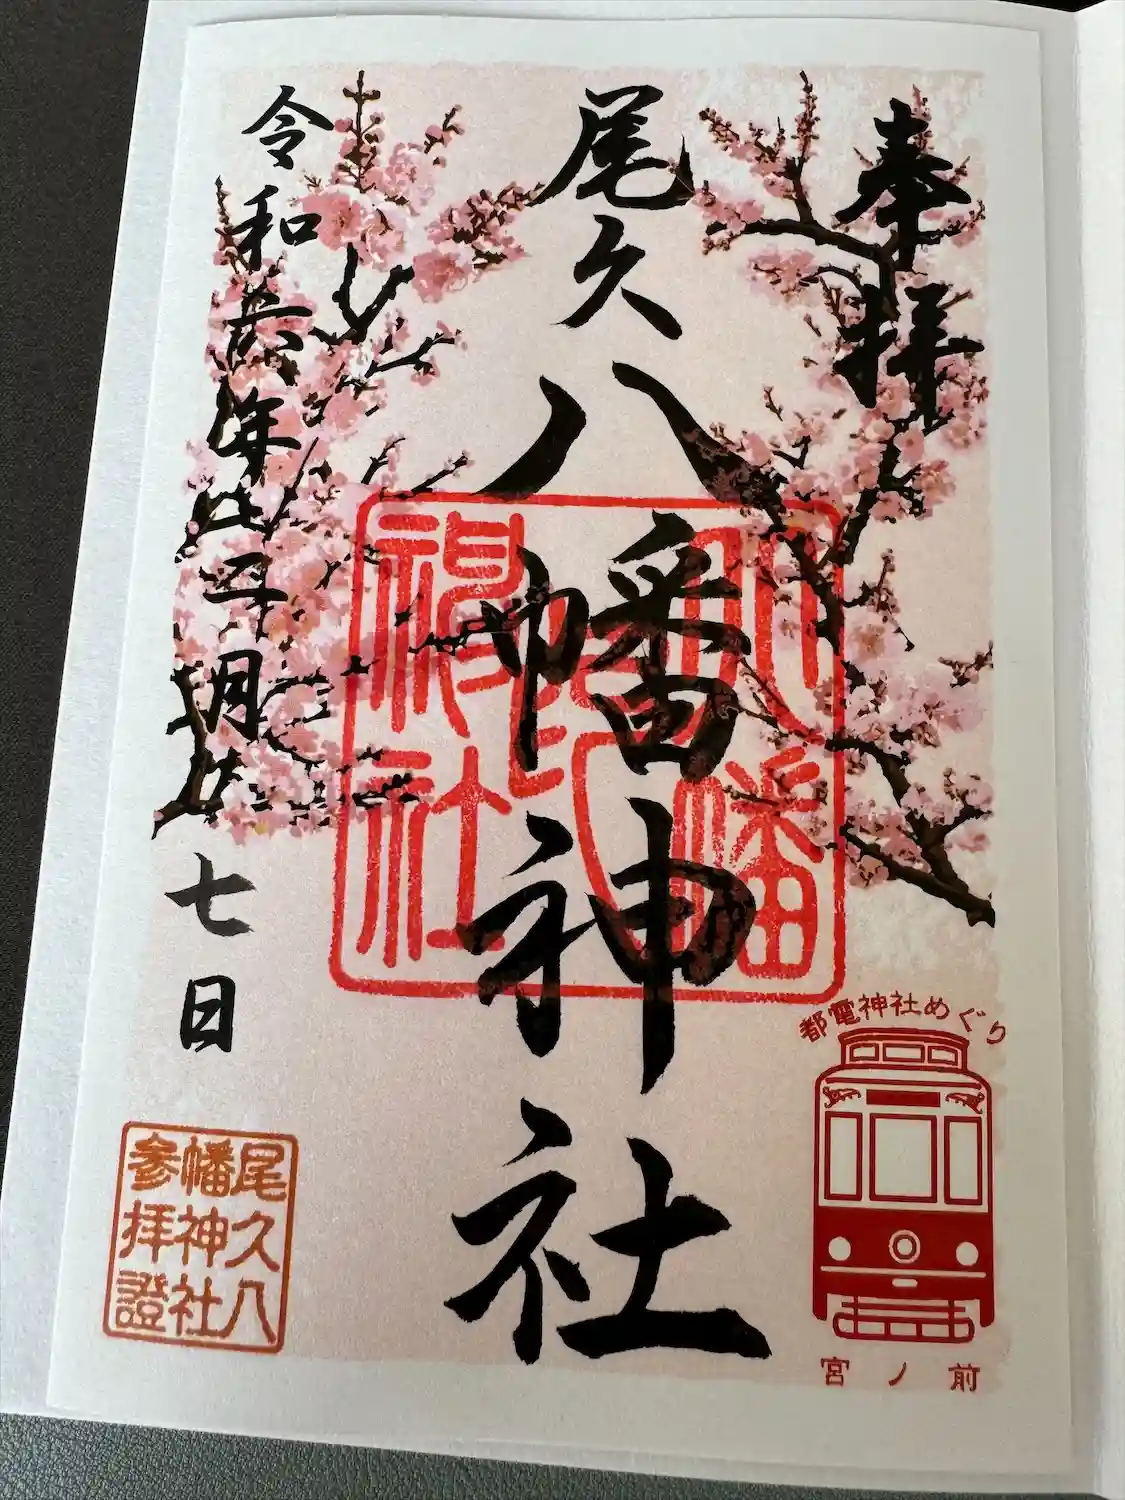 奉拝
尾久八幡神社
八幡
神社
令和六年
月
七日
都電神社めぐり
宮ノ前
尾久八
幡神社
参拝證